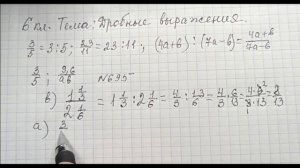 6 кл. Тема: Дробные выражения.
3/5 = 3:5; 23/11 = 23:11; (4a+b):(7a-b) = 4a+b/7a-b
3/5; 3,6/ab №695
в) 1 1/3 / 2 1/6 = 1 1/3 : 2 1/6 = 4/3 : 13/6 = 4/3 · 6/13 = 4·6 2/3·13 = 8/13
а) 3